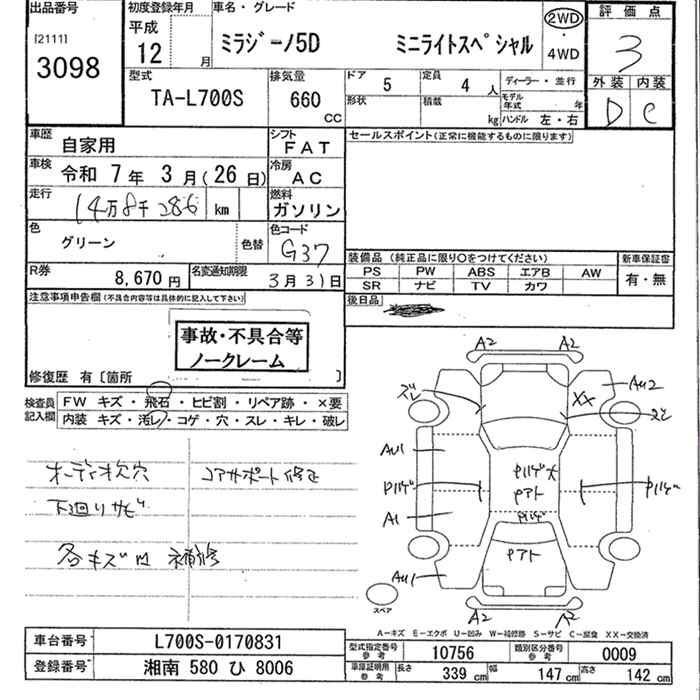 出品番号
[2111]
3098
初度登録年月
平成
12 月
車名・グレード
ミラジーノ5D ミニライトスペシャル
2WD
・
4WD
評価点
3
外装 内装
D C
型式
TA-L700S
排気量
660
CC
ドア
5
定員
4 人
形状
積載
kg
ディーラー・並行
モデル年式 年
ハンドル 左・右
車歴
自家用
シフト
FAT
車検
令和 7 年 3 月(26 日)
冷房
AC
走行
14万8千286 km
燃料
ガソリン
色
グリーン
色替
色コード
G37
R券
8,670 円
名変通知期限
3月31日
セールスポイント(正常に機能するものに限ります)
装備品 (純正品に限り〇をつけてください)
PS PW ABS エアB AW
SR ナビ TV カワ
新車保証書
有・無
後日品
注意事項申告欄(不具合内容等は具体的に記入して下さい)
事故・不具合等
ノークレーム
修復歴 有〔箇所 〕
検査員
記入欄
FW キズ・飛石・ヒビ割・リペア跡・×要
内装 キズ・汚レ・コゲ・穴・スレ・キレ・破レ
オーディオ欠穴
コアサポート修正
下廻りサビ
各キズ凹 補修
A2 A2
ズレ
XX
AU2
AU1
Pハゲ
A1
AU1
Pハゲ大
Pアト
Pハゲ
Pアト
Pハゲ
A2 A2
スペア
A-キズ E-エクボ U-凹み W-補修跡 S-サビ C-腐食 XX-交換済
車台番号
L700S-0170831
登録番号
湘南 580 ひ 8006
型式指定番号
参考
10756
類別区分番号
参考
0009
車庫証明用
参考
長さ 339 cm 幅 147 cm 高さ 142 cm